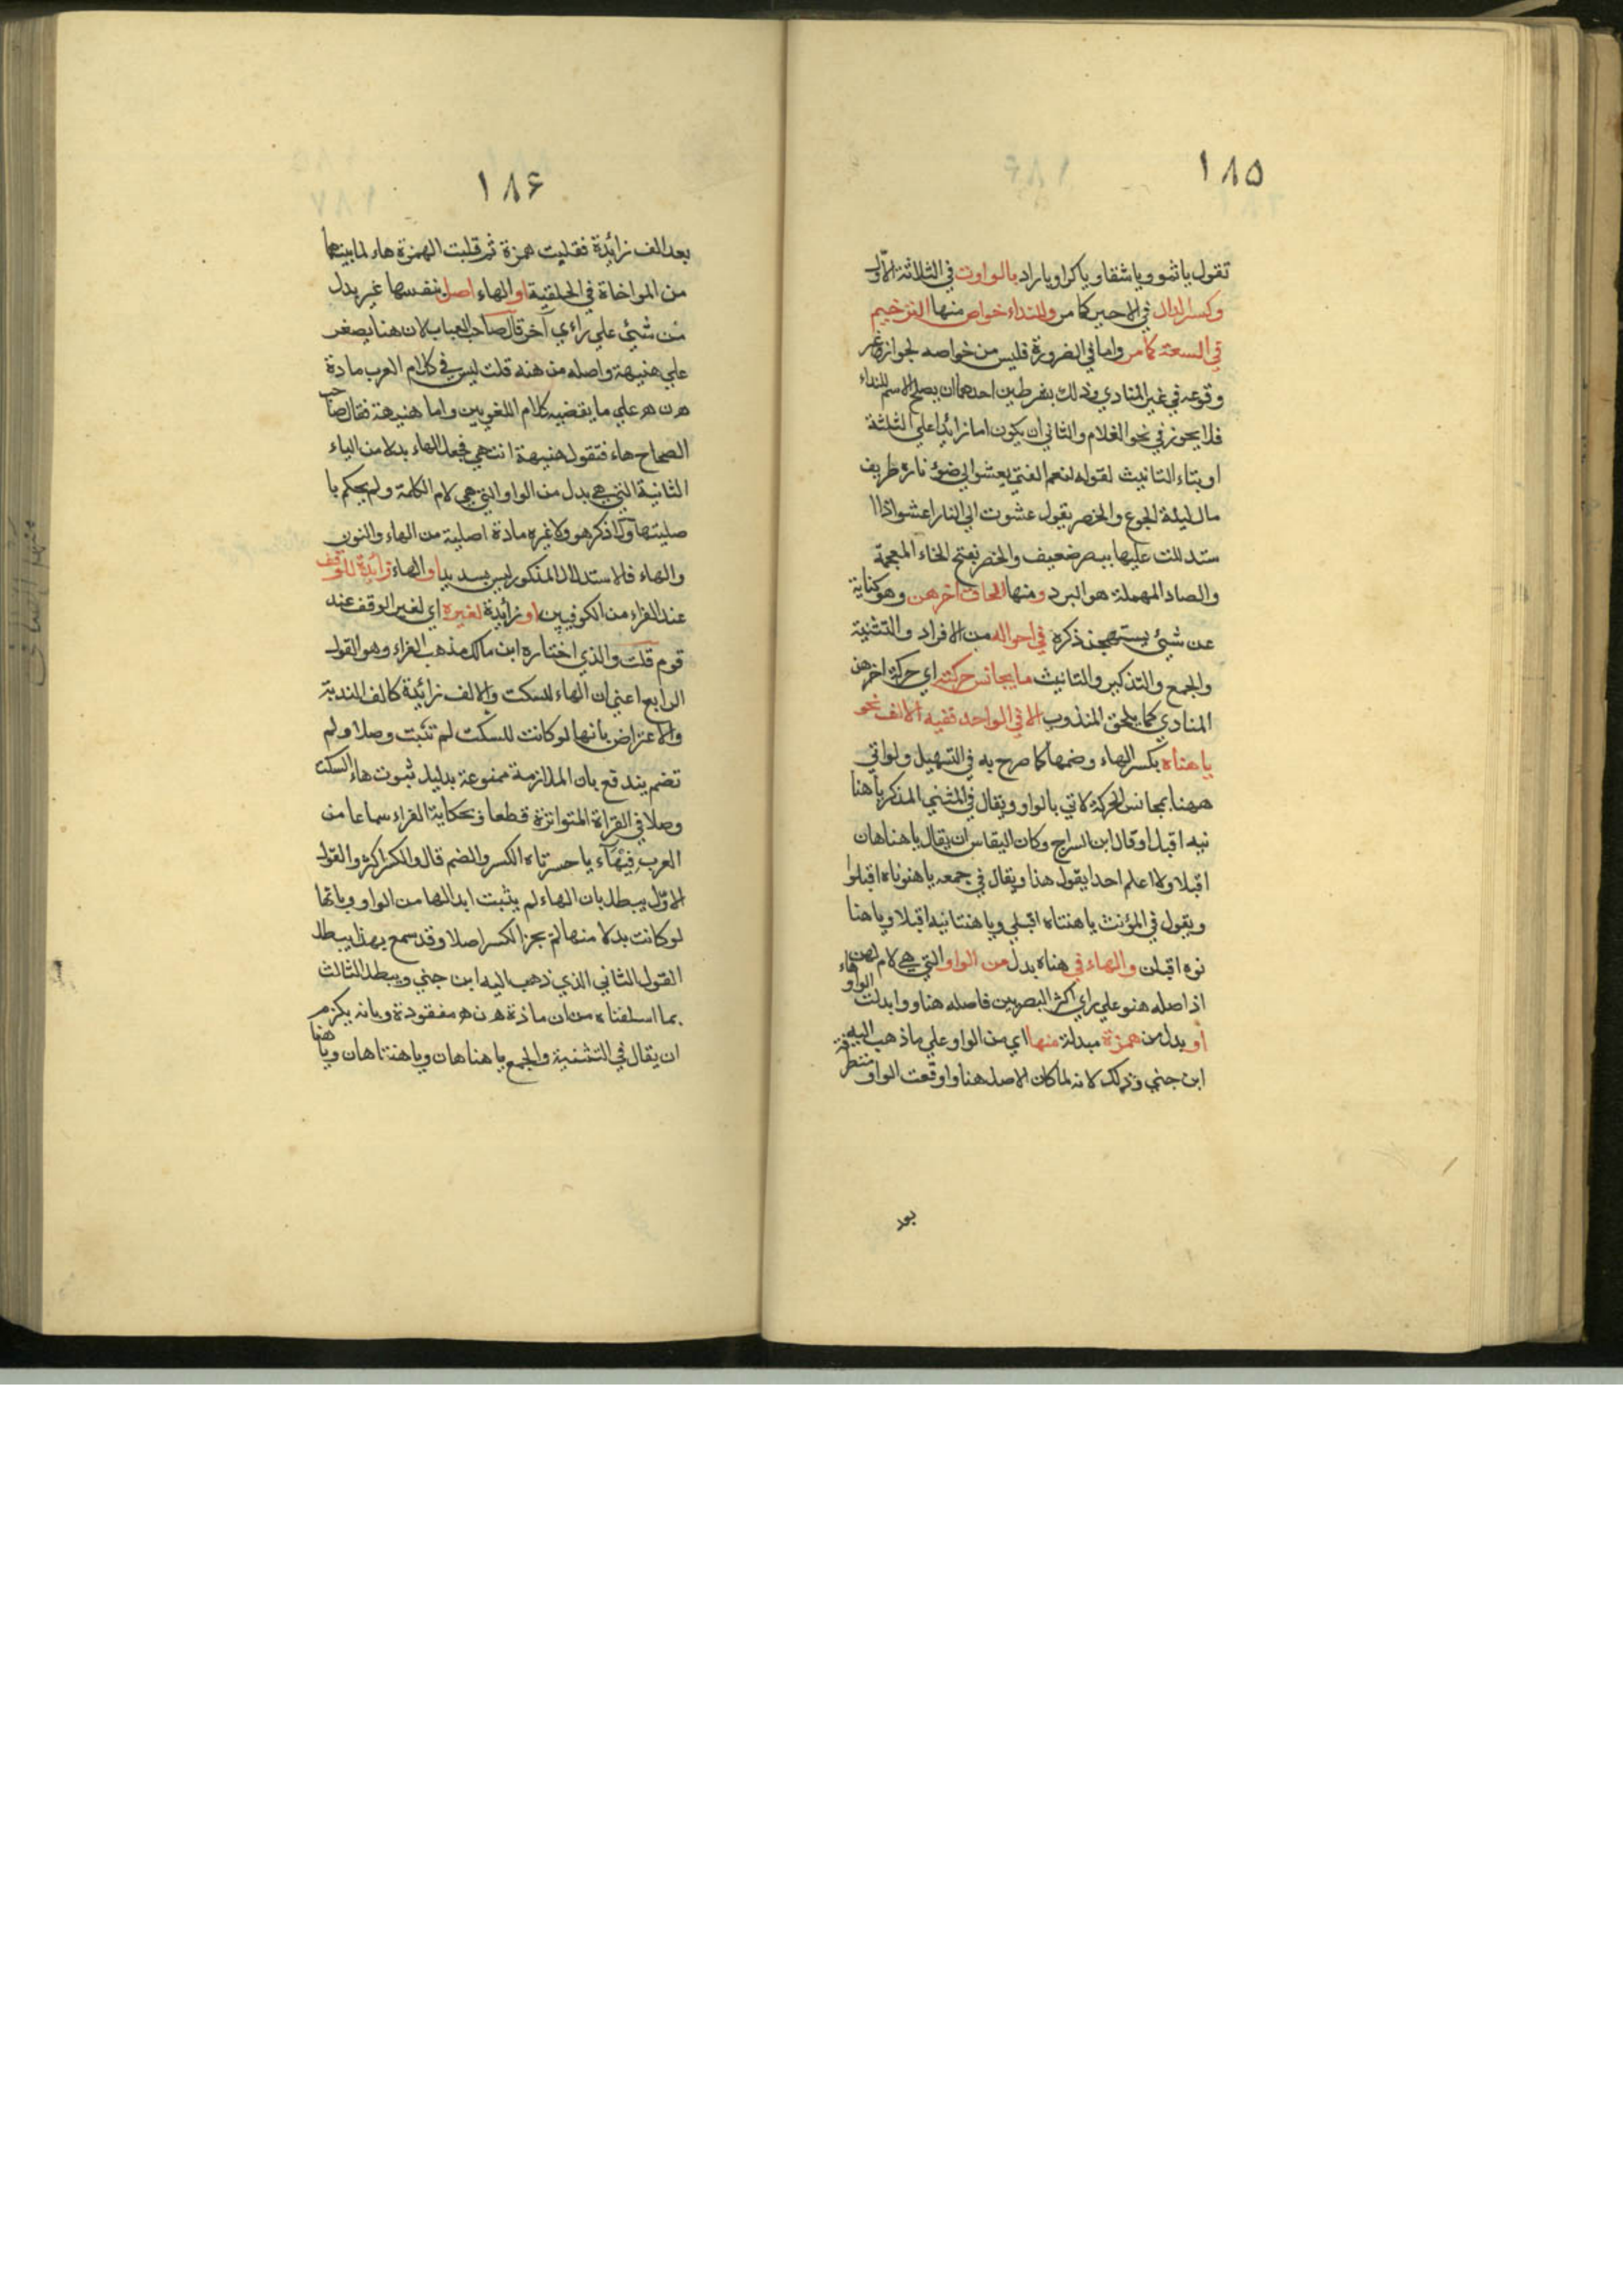 ١٨٥
تقول يا ثمو ويا شقاو يا كراو يا راد بالواوت في الثلاثة الاول
وكسر الدال في الاخير كما مر وللنداء خواص منها الترخيم
في السعة كما مر واما في الضرورة فليس من خواصه لجواز
وقوعه في غير المنادي وذلك بشرطين احدهما ان يصلح الاسم للنداء
فلا يجوز في نحو الغلام والثاني ان يكون اما زائدا علي الثلثة
او بتاء التانيث لقوله لنعم الفتي يعشوا لي ضوئ ناره طريف
مال ليلة الجوع والخصر يقول عشوت الي النار اعشوا اذا ا
ستدللت عليها ببصر ضعيف والخصر بفتح الخاء المعجمة
والصاد المهملة هو البرد ومنها الحاق اخر هن وهو كناية
عن شيئ يستهجن ذكره في احواله من الافراد والتثنية
والجمع والتذكير والتانيث ما يجانس حركته اي حركة اخر هن
المنادي كما يلحق المندوب الا في الواحد ففيه الالف نحو
يا هناه بكسر الهاء وضمها كما صرح به في التسهيل ولو اتي
ههنا بمجانس الحركة لاتي بالواو ويقال في المثني المذكر يا هنا
نيه اقبلا وقال ابن السراج وكان القياس ان يقال يا هناهان
اقبلا ولا اعلم احدا يقول هذا ويقال في جمعه يا هنوناه اقبلوا
ويقول في المؤنث يا هنتاه اقبلي ويا هنتانيه اقبلا ويا هنا
نوه اقبلن والهاء في هناه بدل من الواو التي هي لام لهن
اذ اصله هنو علي راي اكثر البصريين فاصله هناو وابدلت الواو هاء
أو بدل من همزة مبدلة منها اي من الواو علي ما ذهب اليه
ابن جني وذلك لانه لما كان الاصل هناو اوقعت الواو متطرفة
بعد
١٨۶
بعد الف زائدة فقلبت همزة ثم قلبت الهمزة هاء لما بينهما
من المواخاة في الحلقية او الهاء اصل بنفسها غير بدل
من شيئ علي راءي آخر قال صاحب العباب لان هنا يصغر
علي هنيهة واصله من هنه قلت ليس في كلام العرب مادة
ه ن ه علي ما يقضيه كلام اللغويين واما هنيهة فقال صاحب
الصحاح هاء فتقول هنيهة انتهي فجعل الهاء بدلا من الياء
الثانية التي هي بدل من الواو التي هي لام الكلمة ولم يحكم با
صليتها ولا ذكر هو ولا غيره مادة اصلية من الهاء والنون
والهاء فالاستدلال المذكور ليس بسديد او الهاء زائدة للوقف
عند الفراء من الكوفيين او زائدة لغيره اي لغير الوقف عند
قوم قلت والذي اختاره ابن مالك مذهب الفراء وهو القول
الرابع اعني ان الهاء للسكت والالف زائدة كالف الندبة
والاعتراض بانها لو كانت للسكت لم تثبت وصلا ولم
تضم يندفع بان الملازمة ممنوعة بدليل ثبوت هاء السكت
وصلا في القراة المتواترة قطعا وبحكاية الفراء سماعا من
العرب في هاء يا حسرتاه الكسر والضم قال والكسر اكثر والقول
الاول يبطل بان الهاء لم يثبت ابدالها من الواو وبانها
لو كانت بدلا منها لم يجز الكسر اصلا وقد سمع بهذا يبطل
القول الثاني الذي ذهب اليه ابن جني ويبطل الثالث
بما اسلفناه من ان مادة ه ن ه مفقودة وبانه يلزم
ان يقال في التثنية والجمع يا هناهان ويا هنتاهان ويا هنا